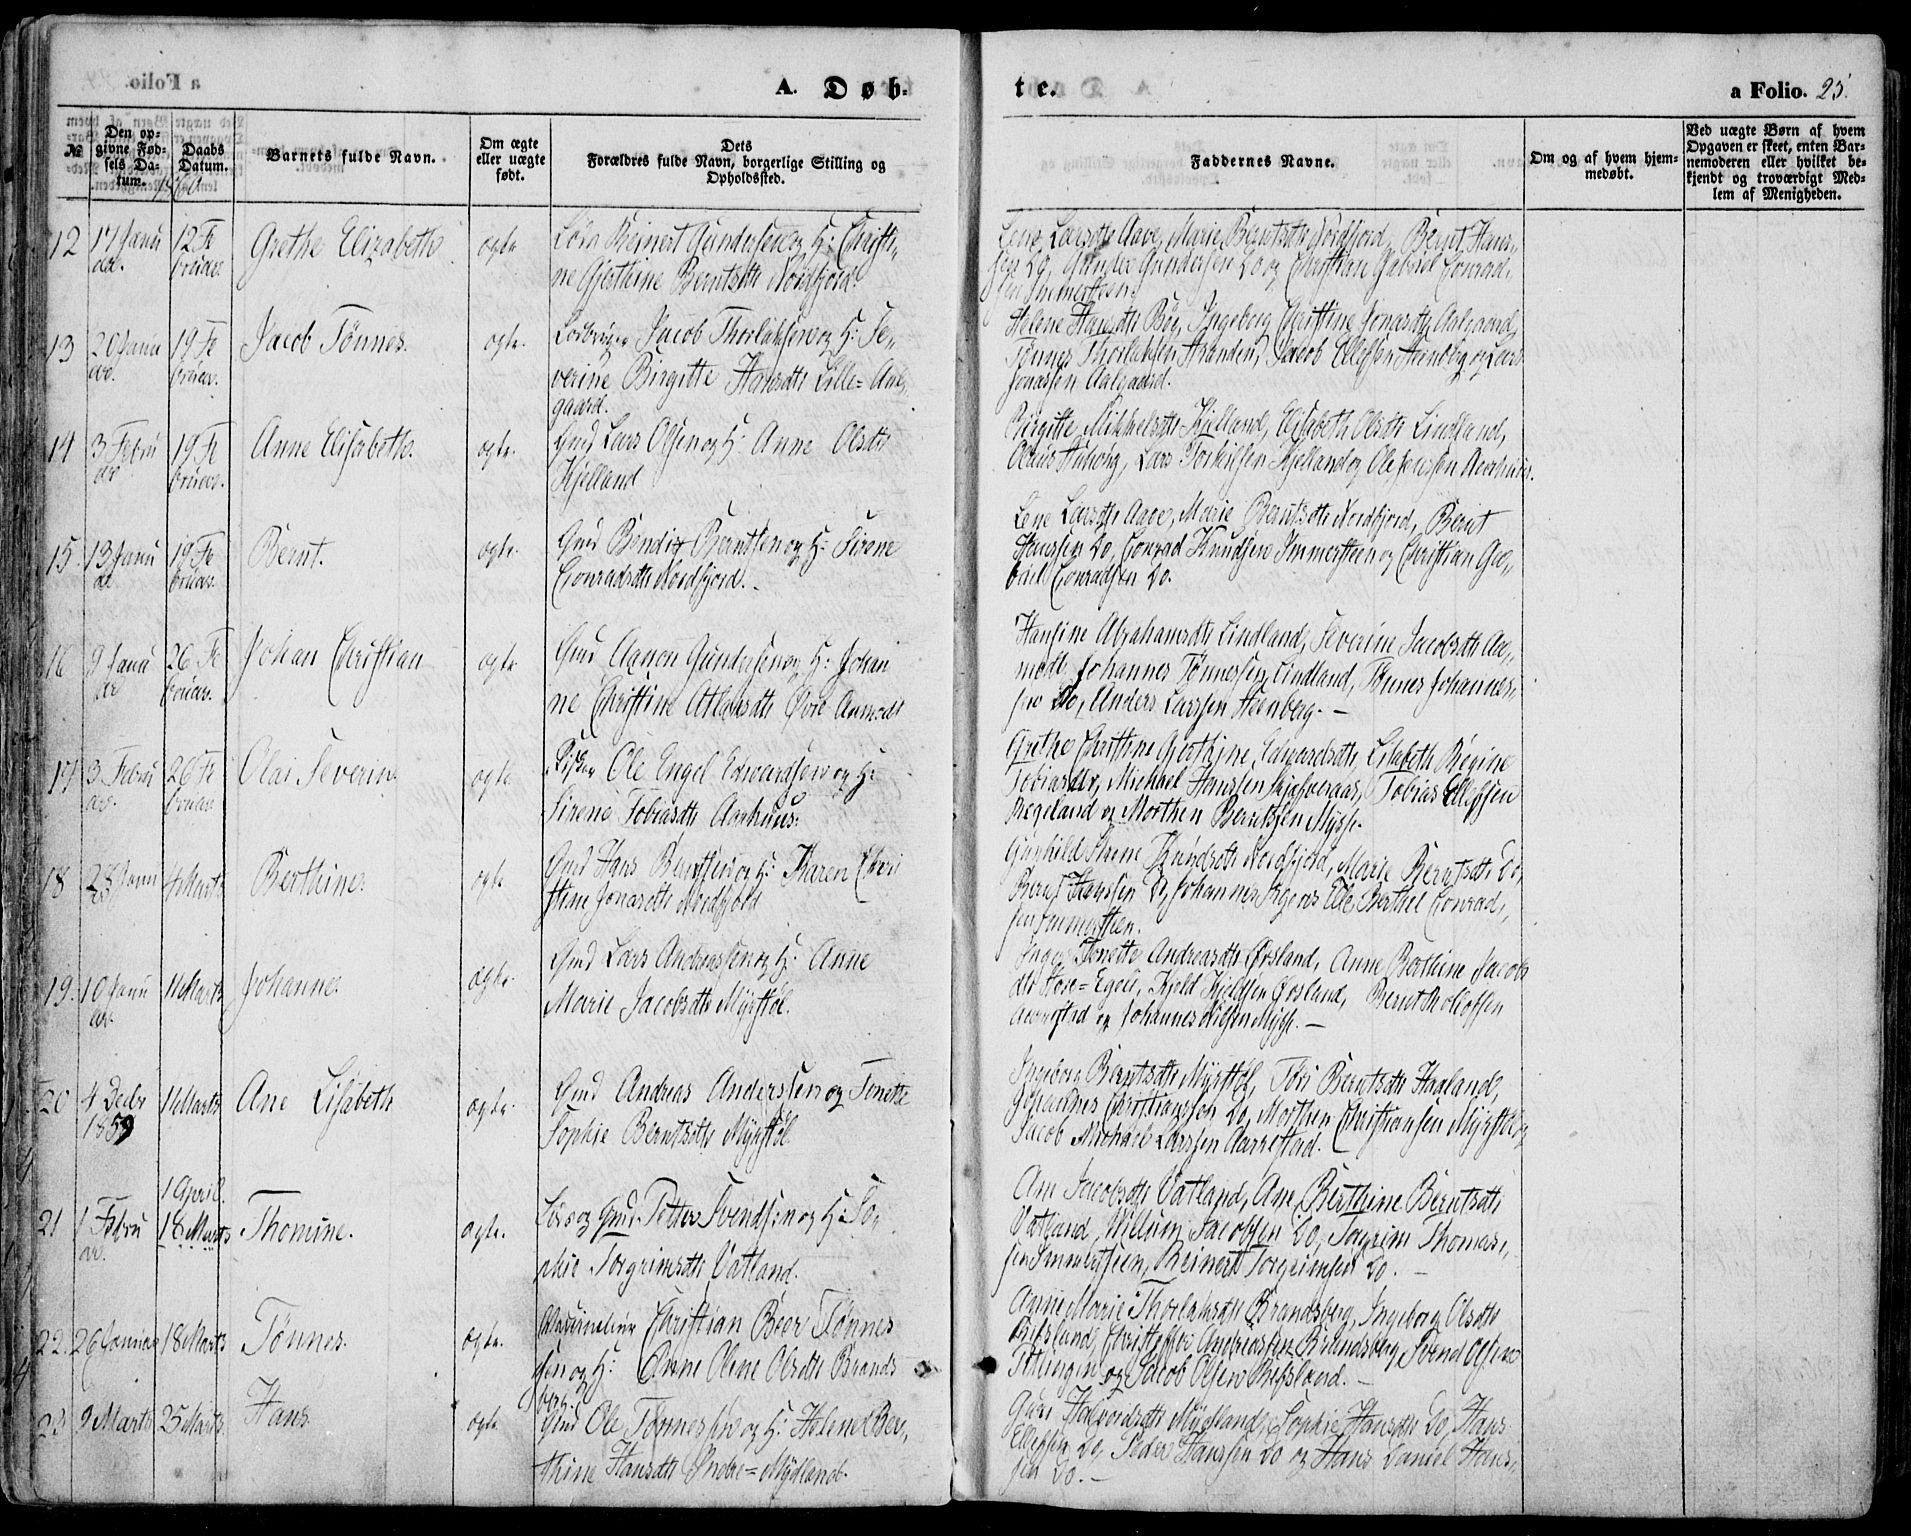 A. Døb-
te.
a Folio. 25.
№
Den op-
givne Fød-
sels Da-
tum.
Daabs
Datum.
Barnets fulde Navn.
Om ægte
eller uægte
født.
Dets
Forældres fulde Navn, borgerlige Stilling og
Opholdssted.
Faddernes Navne.
Om og af hvem hjem-
medøbt.
Ved uægte Børn af hvem
Opgaven er skeet, enten Bar-
nemoderen eller hvilket be-
kjendt og troværdigt Med-
lem af Menigheden.
1860
12
17 Janu
ar.
12 Fe
bruar.
Grethe Elizabeth
ægte
Reinert Gundersen og H: Christi-
ne Gjerthine Berntsdtr Nordfjord.
Lene Larsdtr Aave, Marie Berntsdtr Nordfjord, Bernt Hans-
sen Do, Gunder Gundersen Do og Christian Gabriel Conrad-
sen Immersteen.
13
20 Janu
ar.
19 Fe
bruar.
Jacob Tønnes.
ægte.
Jacob Thorlaksen og H: Se-
verine Birgitte Hansdtr Lille-Aal-
gaard.
Helene Hansdtr Bøe, Ingeborg Christine Jonasdtr Aalgaard,
Tønnes Thorlaksen Stranden, Jacob Ellefsen Steenberg og Lars
Jonassen Aalgaard.
14
3 Febru
ar
19 Fe
bruar.
Anne Elisabeth.
ægte.
Gmd Lars Olsen og H: Anne Olsdtr
Kjelland
Birgitte Mikkelsdtr Kjelland, Elisabeth Olsdtr Lindland,
Lars Torkilsen Kjelland og Ole
15.
13 Janu
ar
19 Fe
bruar.
Bernt.
ægte.
Gmd Bendix Berntsen og H: Sirene
Conradsdtr Nordfjord.
Lene Larsdtr Aave, Marie Berntsdtr Nordfjord, Bernt
Hanssen Do, Conrad Knudsen Immersteen og Christian Ga-
briel Conradsen Do.
16
9 Janu
ar
26 Fe
bruar.
Johan Christian
ægte
Gmd Aanon Gundersen og H: Johan
ne Christine Atlaksdtr Øvre Aamodt
Hansine Abrahamsdtr Lindland, Severine Jacobsdtr Aa-
modt, Johannes Tønnessen Lindland, Tønnes Johannes-
sen Do, Anders Larssen Steenberg. —
17
3 Febru
ar.
26 Fe
bruar
Olai Severin
ægte
Ole Engel Edvardsen og H:
Sirene Tobiasdtr Aarhuus.
Grethe Christine Gjerthine Edvardsdtr, Lisabeth Regine
Tobiasdtr, Michael Hanssen Skjefveraas, Tobias Ellefsen
Regeland og Morthen Berntsen Mysse.
18
28 Janu
ar
4 Marts
Berthine.
ægte
Gmd Hans Berntsen og H: Karen Chri
stine Jonasdtr Nordfjord
Gunhild Sirene Knudsdtr Nordfjord, Marie Berntsdtr Do,
Bernt Hanssen Do, Johannes Elle, Berthel Conrad-
sen Immersteen.
19.
10 Janu
ar.
11 Marts
Johanne.
ægte.
Gmd Lars Andreassen og H: Anne
Marie Jacobsdtr Myrstøl.
Inger Tonette Andreasdtr Ørsland, Anne Berthine Jacobs
dtr Store-Egeli, Kjeld Kjeldsen Ørsland, Bernt
og Johannes Nilsen Mysse. —
20
4 Decbr
1859
11 Marts
Ane Lisabeth
ægte.
Gmd Andreas Anderssen og Tonette
Sophie Berntsdtr Myrstøl
Ingeborg Berntsdtr Myrstøl, Tori Berntsdtr Haaland,
Johannes Christianssen Do, Morthen Christiansen Myrstøl og
Jacob Michael Larssen Aarrestad.
21
1 Febru
ar.
1 April.
18 Marts
Thomine.
ægte.
Løs og Gmd. Petter Svendsen og H: So-
phie Torgrimsdtr Vatland.
Ane Jacobsdtr Vatland, Ane Berthine Berntsdtr
Vatland, Willum Jacobsen Do, Torgrim Thomas-
sen Immersteen, Reinert Torgrimsen Do. —
22.
26 Januar
18 Marts
Tønnes.
ægte.
Christian Beer Tønnes
sen og H: Anne Olene Olsdtr Brands
berg.
Anne Marie Thorlaksdtr Brandsberg, Ingeborg Olsdtr
Refsland, Christoffer Andreassen Brandsberg, Svend Olsen
Tetlingen og Jacob Olsen Refsland. —
23
9 Marts
25 Marts
Hans
ægte
Gmd Ole Tønnessen og H: Helene Ber-
thine Hansdtr Indre-Mydland.
Guri Halvordsdtr Mydland, Sophie Hansdtr Do, Hans
Ellefsen Do, Peder Hanssen Do og Hans Daniel Hans-
sen Do. —